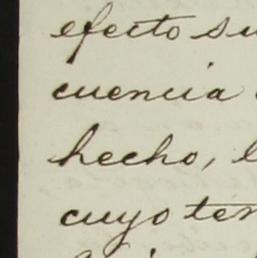 efecto su
cuencia
hecho, l
cuyo ter